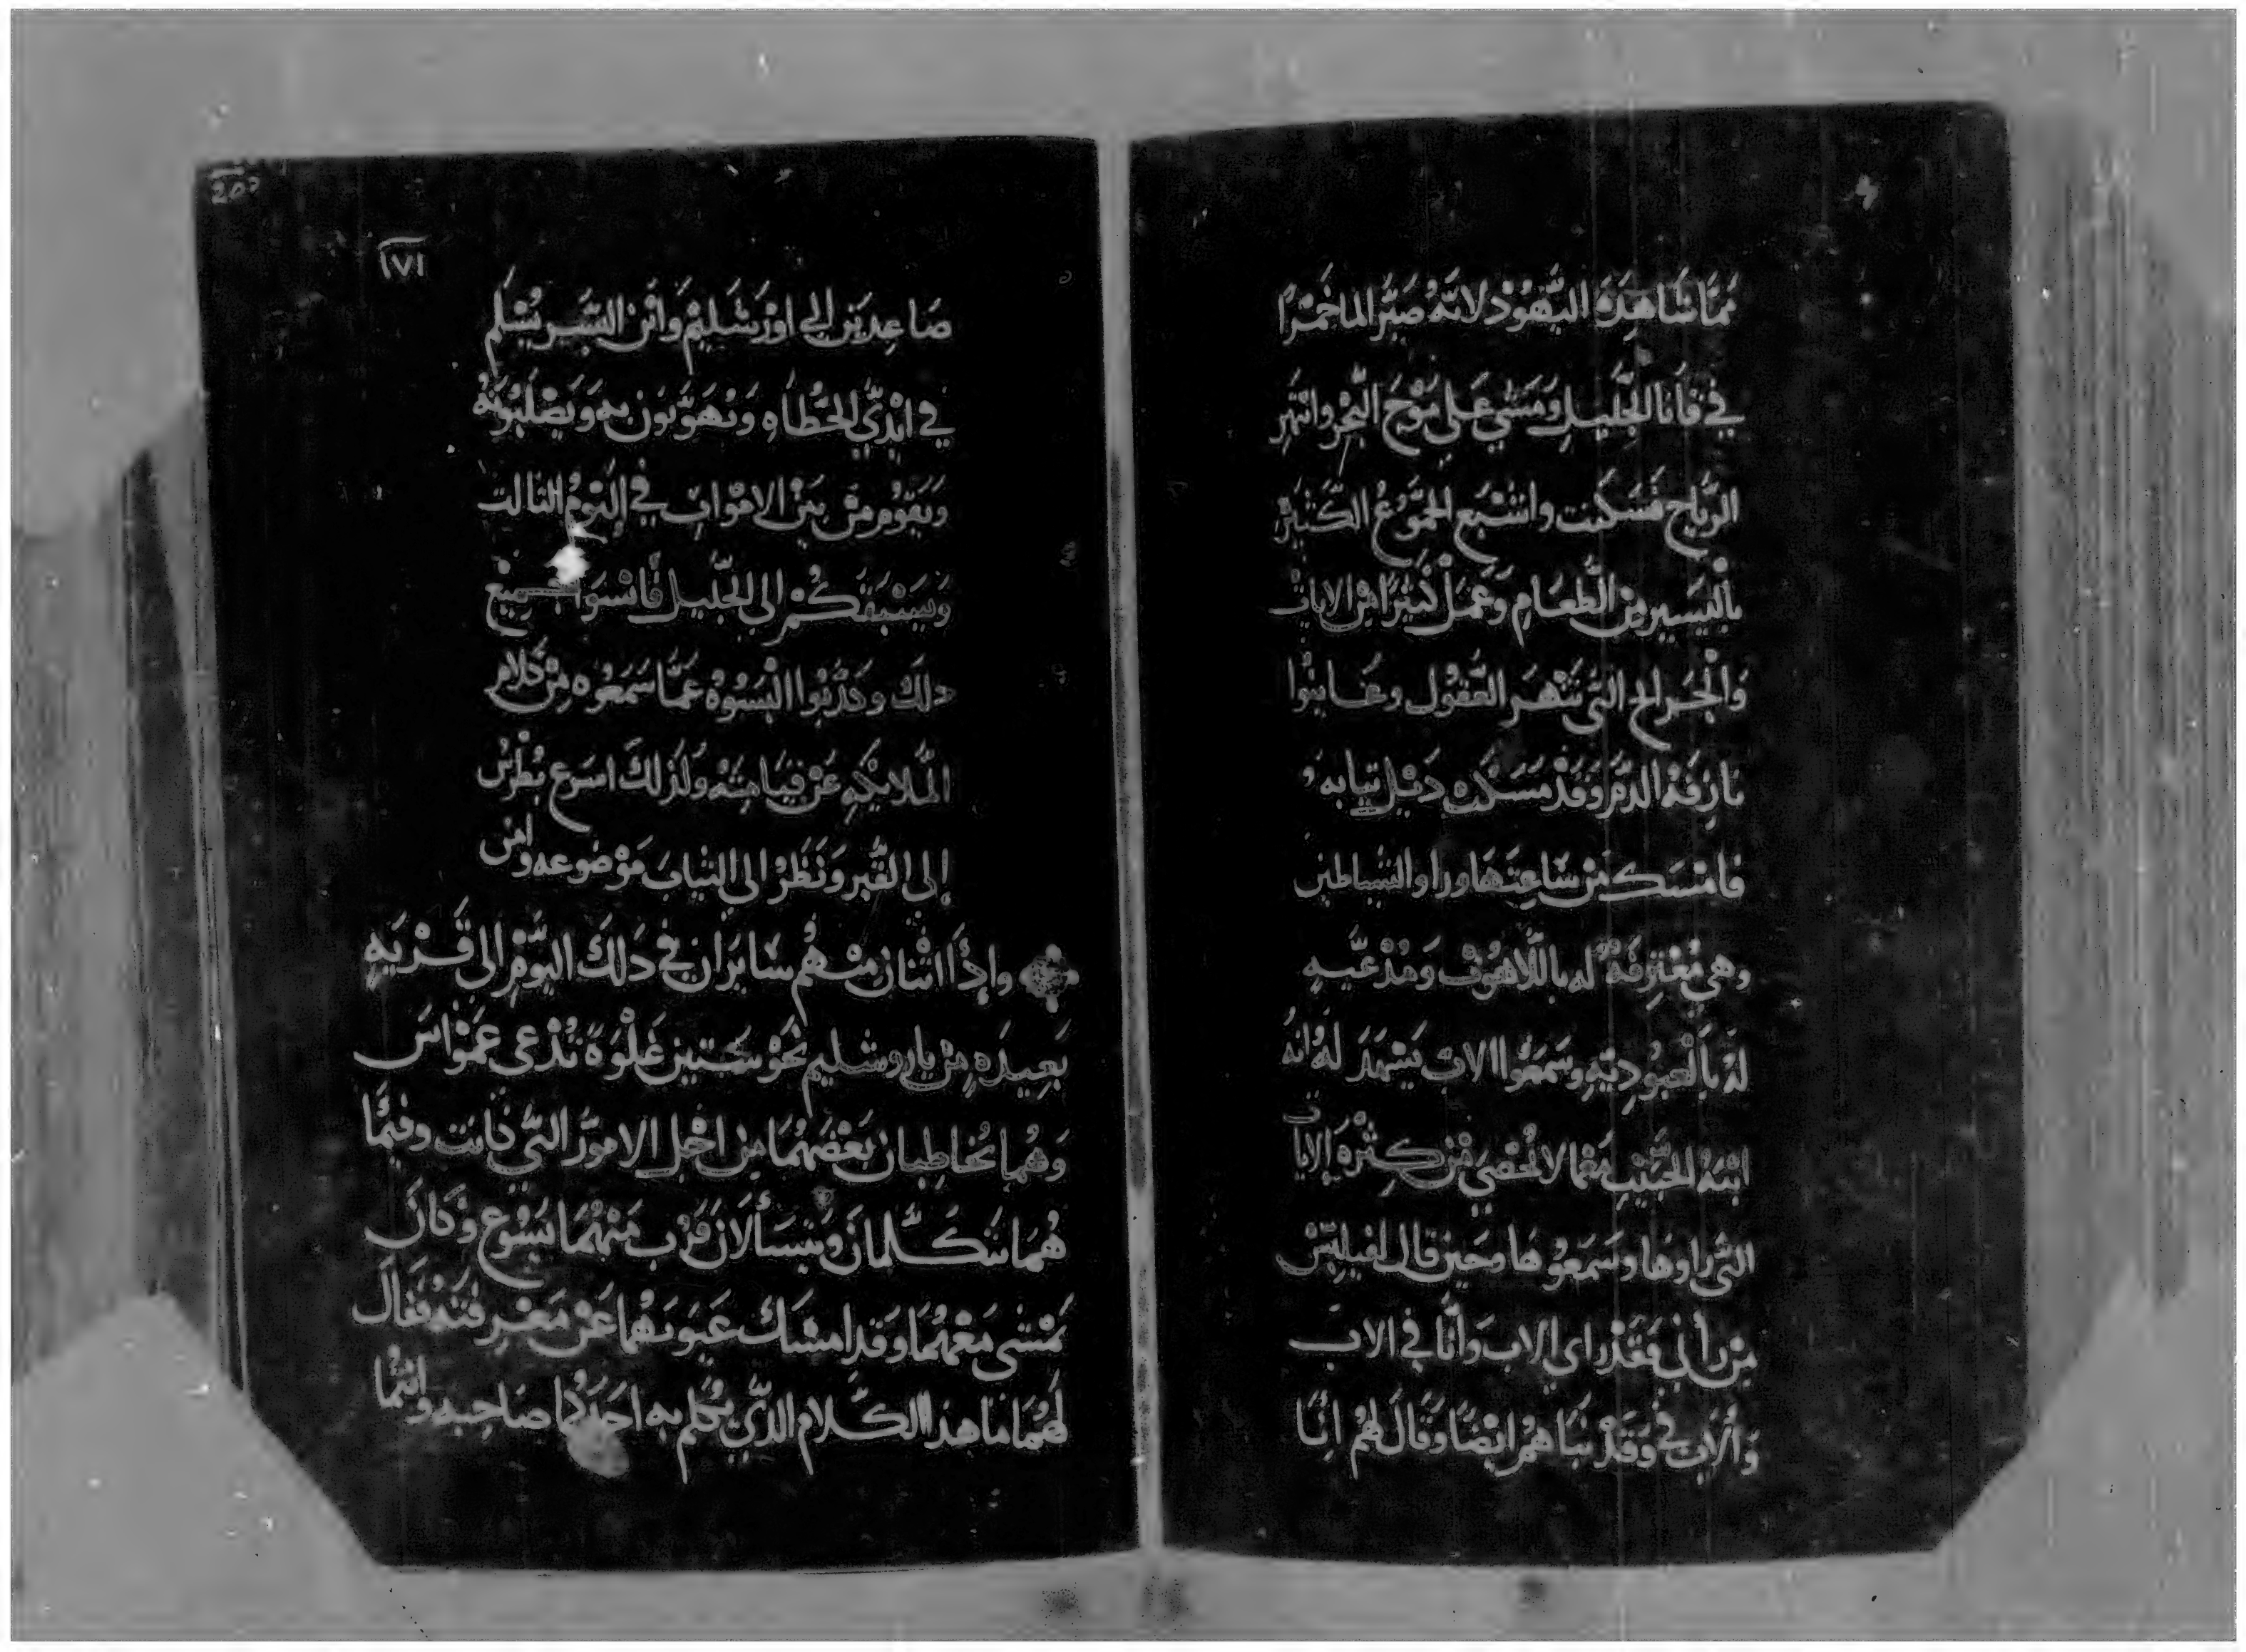 مَمَّا شَاهِدَهُ اليَّهُوْد لانَّهُ صَيَّرَ الماخَمْرًا
في قَانَا الجَّلِيْلِ وَمَشَي عَلي مَوْجَ البَّحْر وانتَهَر
الرِّيَاح فَسَكَنَت واشْبَع الجمُّوعُ الكَتيْر
بالْيَسيرِ مِنْ الطَّعَامِ وَعَمَلْ كَتيْرًا مِنْ الاياتْ
وَالْجَرايح التَّي تَنْهَر العُّقُول وعَاينُوا
نازِفَة الدَّمْ وَقَدْ مَسَكَتْ دَيْل تيابه
فامْسَك مِنْ سَاعِتَهَا وراوا الشيَّاطين
وهي مُعْتَرِفَةً له باللَّاهُوْت وَمُدْعَيَّهِ
لهْ بَالعبُودِيَّهِ وسَمَعُوا الابْ يَشْهَدَ لهُ انهُ
ابْنَهُ الحَبَيْبِ مَعْمَا لا يُحْصَي مِنْ كِتْرَةِ الايات
التَّي راوهَا وسَمَعُوهَا وحَيْن قال لفيلِبَّسْ
مِنْ رأني فَقَدْ راي الابْ وَأنَا في الابْ
وَالابْ فيَّ وَقَدْ نبَاهُمْ ايْضًا وَقَالَ لهُمْ انَّا
٢٥٢
١٧١
صَاعِدِيَن الي اوْرَشَلِيْمْ وَابْن البَّشَر يُسْلَم
في ايْدَيِّ الخُّطَاهِ وَيُهَزَّون بهِ وَيَصْلِبُونَهُ
وَيَقُوْمِ مِنْ بَيْن الامْواتْ في اليَّوْمُ التالت
وَيَسْبَقَكُمْ الي الجَّلِيْل فأنْسَوَا جَمِيْع
دلكَ وكَدَّبُوا النِّسْوُةُ عَمَّا سَمَعُوه مِنْ كَلام
المَّلايِكَهِ عَنْ قِيَامَتَهْ ولَذلِكَ اسرَع بُطْرُس
إلى القَّبر وَنَظَرْ الي التيَاب مَوْضوعه وامن
وَإذَا اتْنان منْهُم سَايرَان في دَلكَ اليَّوْمِ الى قَرْيَهِ
بَعِيدَهِ مِنْ يارُوشليم نَحْو سَتين غَلْوَةَ تُدْعى عَمْوَاسَ
وَهُما يُخاطِبان بَعْضَهُمَا مِنْ اجْل الامورْ التَّي كانت وفيْمَا
هُمَا يتَكَلَّمانْ وَيَتسَألانْ قَرْبَ مِنْهُمَا يَسُوْع وَكانَ
يَمْشي مَعْهُمَا وقد امسَك عيُونَهُما عَنْ مَعْرِفَتَهْ فَقَالَ
لهُمَا مَا هذا الكَّلام الذَّي يُكلم به احَدَكُما صَاحِبه وانتُمَا